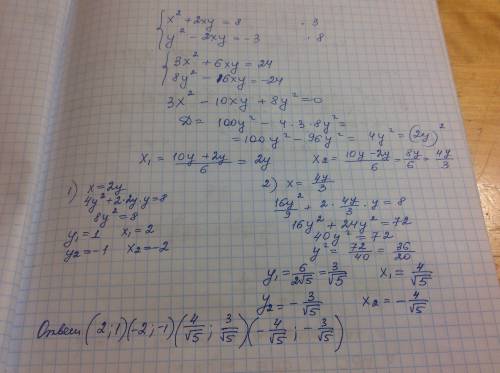 { x² + 2xy = 8 · 3
{ y² - 2xy = -3 · 8
{ 3x² + 6xy = 24
{ 8y² - 16xy = -24
3x² - 10xy + 8y² = 0
D = 100y² - 4 · 3 · 8y² =
= 100y² - 96y² = 4y² = (2y)²
x₁ = (10y + 2y)/6 = 2y x₂ = (10y - 2y)/6 = 8y/6 = 4y/3
1) x = 2y
4y² + 2 · 2y · y = 8
8y² = 8
y₁ = 1 x₁ = 2
y₂ = -1 x₂ = -2
2) x = 4y/3
16y²/9 + 2 · 4y/3 · y = 8
16y² + 24y² = 72
40y² = 72
y² = 72/40 = 36/20
y₁ = 6/2√5 = 3/√5 x₁ = 4/√5
y₂ = -3/√5 x₂ = -4/√5
Ответ (2; 1) (-2; -1) (4/√5; 3/√5) (-4/√5; -3/√5)